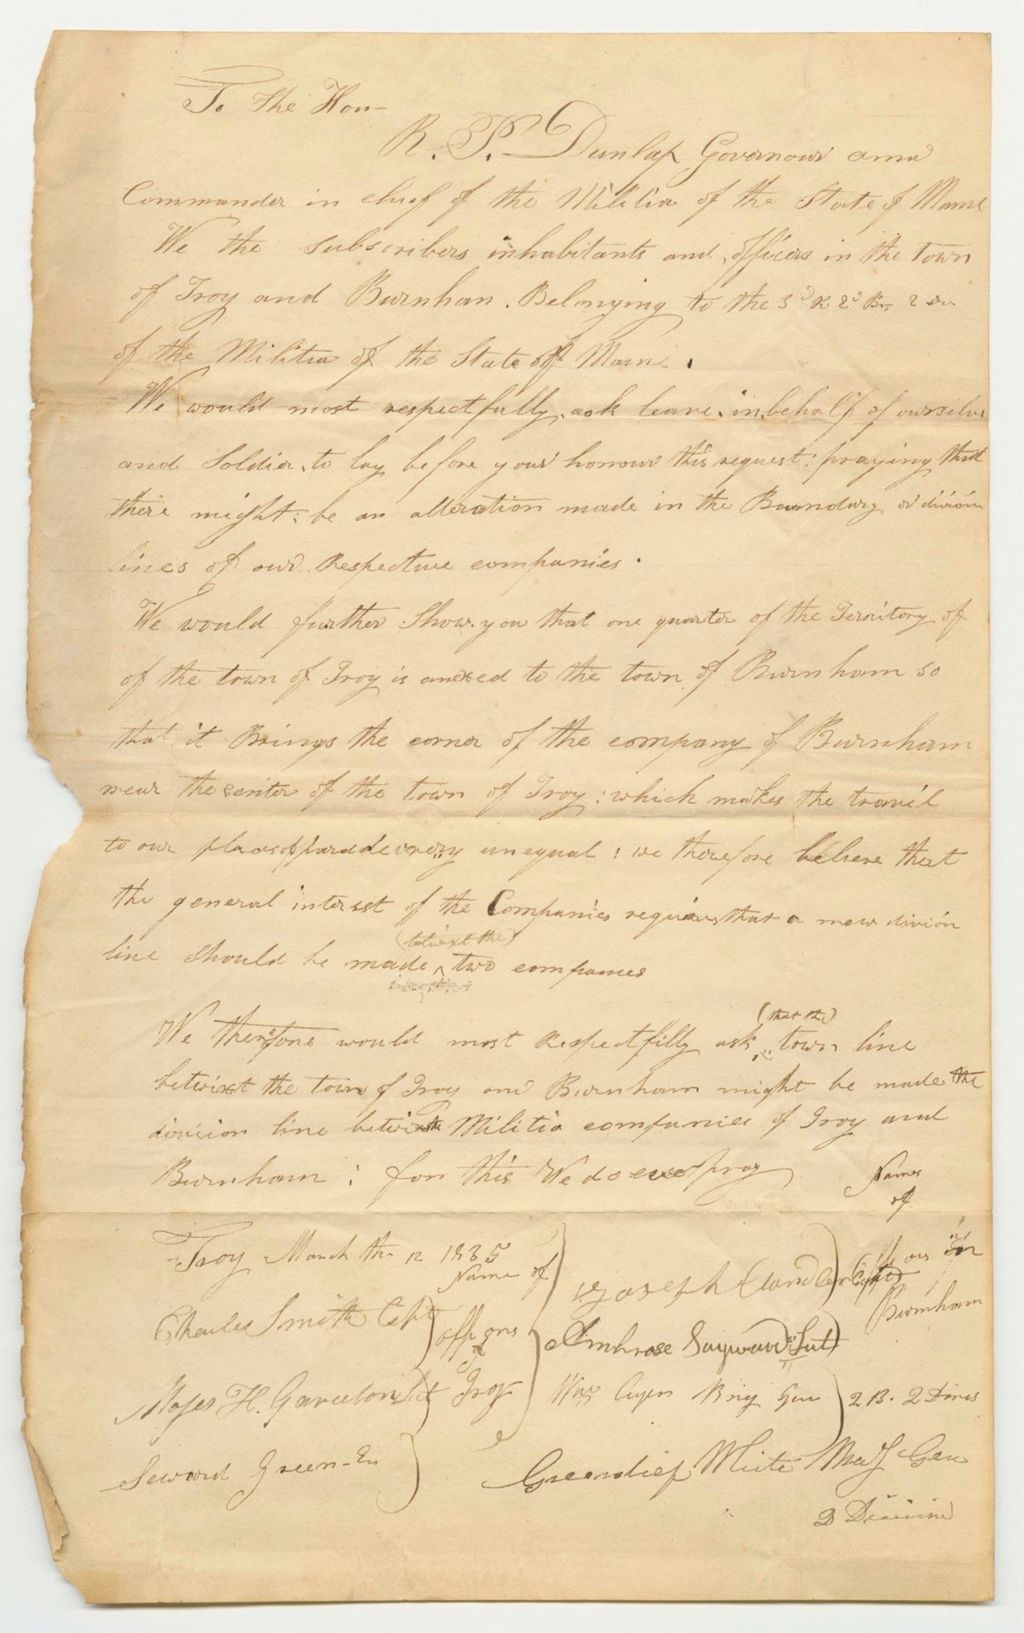 To the Hon
R. P. Dunlap Governour and
Commander in chief of the Militia of the State of Maine
We the subscribers inhabitants and officers in the town
of Troy and Burnham. Belonging to the 2d 2
of the Militia of the State off Maine.
We would most respectfully ask leave in behalf of ourselves
and Soldier to lay before your honour this request: praying that
there might: be an alteration made in the Boundary or divison
lines of our Respective companies.
We would further Show you that one quarter of the Territory of
of the town of Troy is anexed to the town of Burnham so
that it Brings the corner of the company of Burnham
near the center of the town of Troy: which makes the travil
to our place of parade very unequal: we therefore believe that
the general interest of the Companies requires that a new divison
line should be made (betwixt the) two companies
We therefore would most Respectfilly ask (that the) town line
betwixt the town of Troy and Burnham might be made the
division line betwixt Militia companies of Troy and
Burnham: for this We do ever pray
Names
of
Troy March the 12 1835
Name of
officers in
Burnham
Charles Smith Capt
officers
of
Troy
Joseph Capt
Ambrose Sayward Lut
Moses H. Garcelon Lut
Brig Gen 2 B. 2 Divis
Seward Green En
Greenlief White Maj Gen
2 Divison